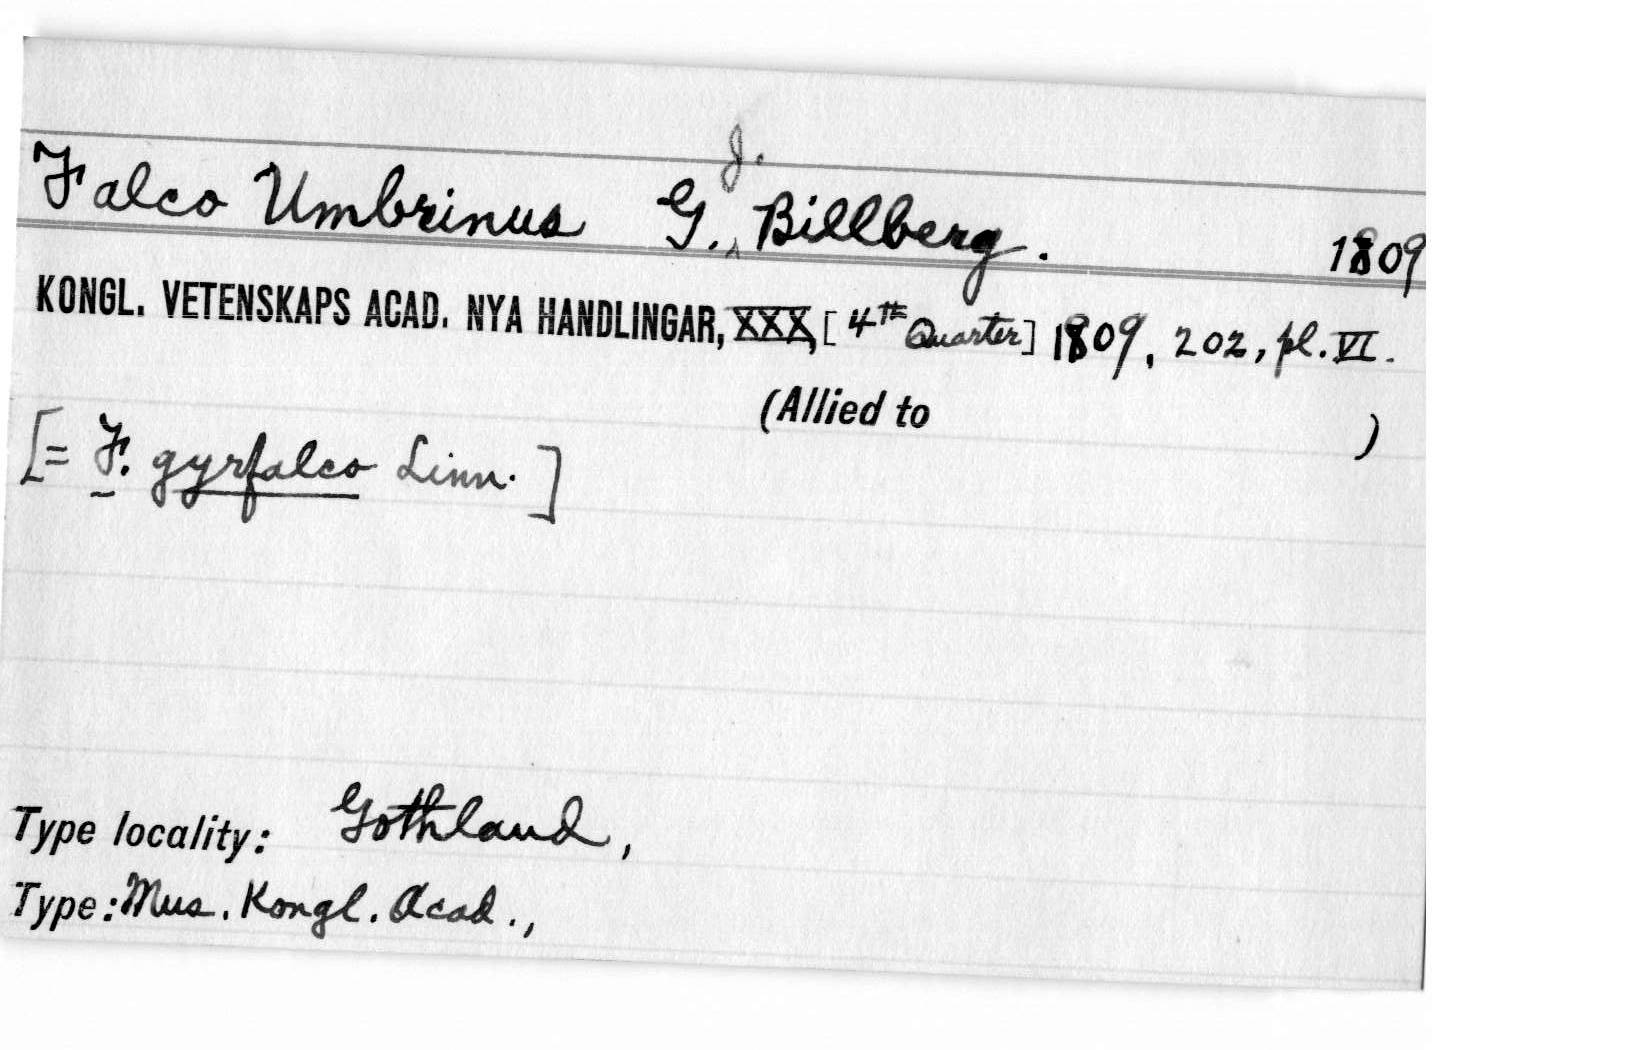 Falco Umbrinus G. J. Billberg. 1809
KONGL. VETENSKAPS ACAD. NYA HANDLINGAR, XXX, [4TH Quarter] 1809, 202, pl. VI.
(Allied to )
[= F. gyrfalco Linn.]
Type locality: Gothland,
Type: Mus. Kongl. Acad.,